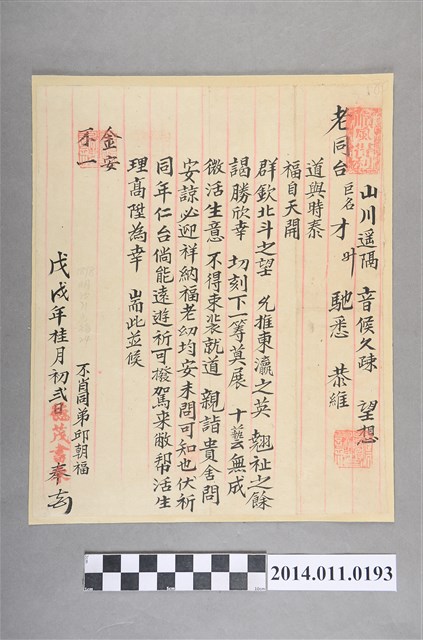 山川遥隔 音候久疎 望想
老同台 巨名 才叶 馳悉 恭維
道與時泰
福自天開
群欽北斗之望 允推東瀛之英 翹祉之餘
謁勝欣幸 切刻下一籌莫展 十藝無成
微活生意 不得束裝就道 親詣貴舍問
安諒必迎祥納福老幼均安未問可知也伏祈
同年仁台倘能遠遊祈可撥駕來敝帮活生
理髙陞為幸 耑此並候
金安
不一
不肖同弟邱朝福
戊戌年桂月初弍日 茂書 奉
2014.011.0193